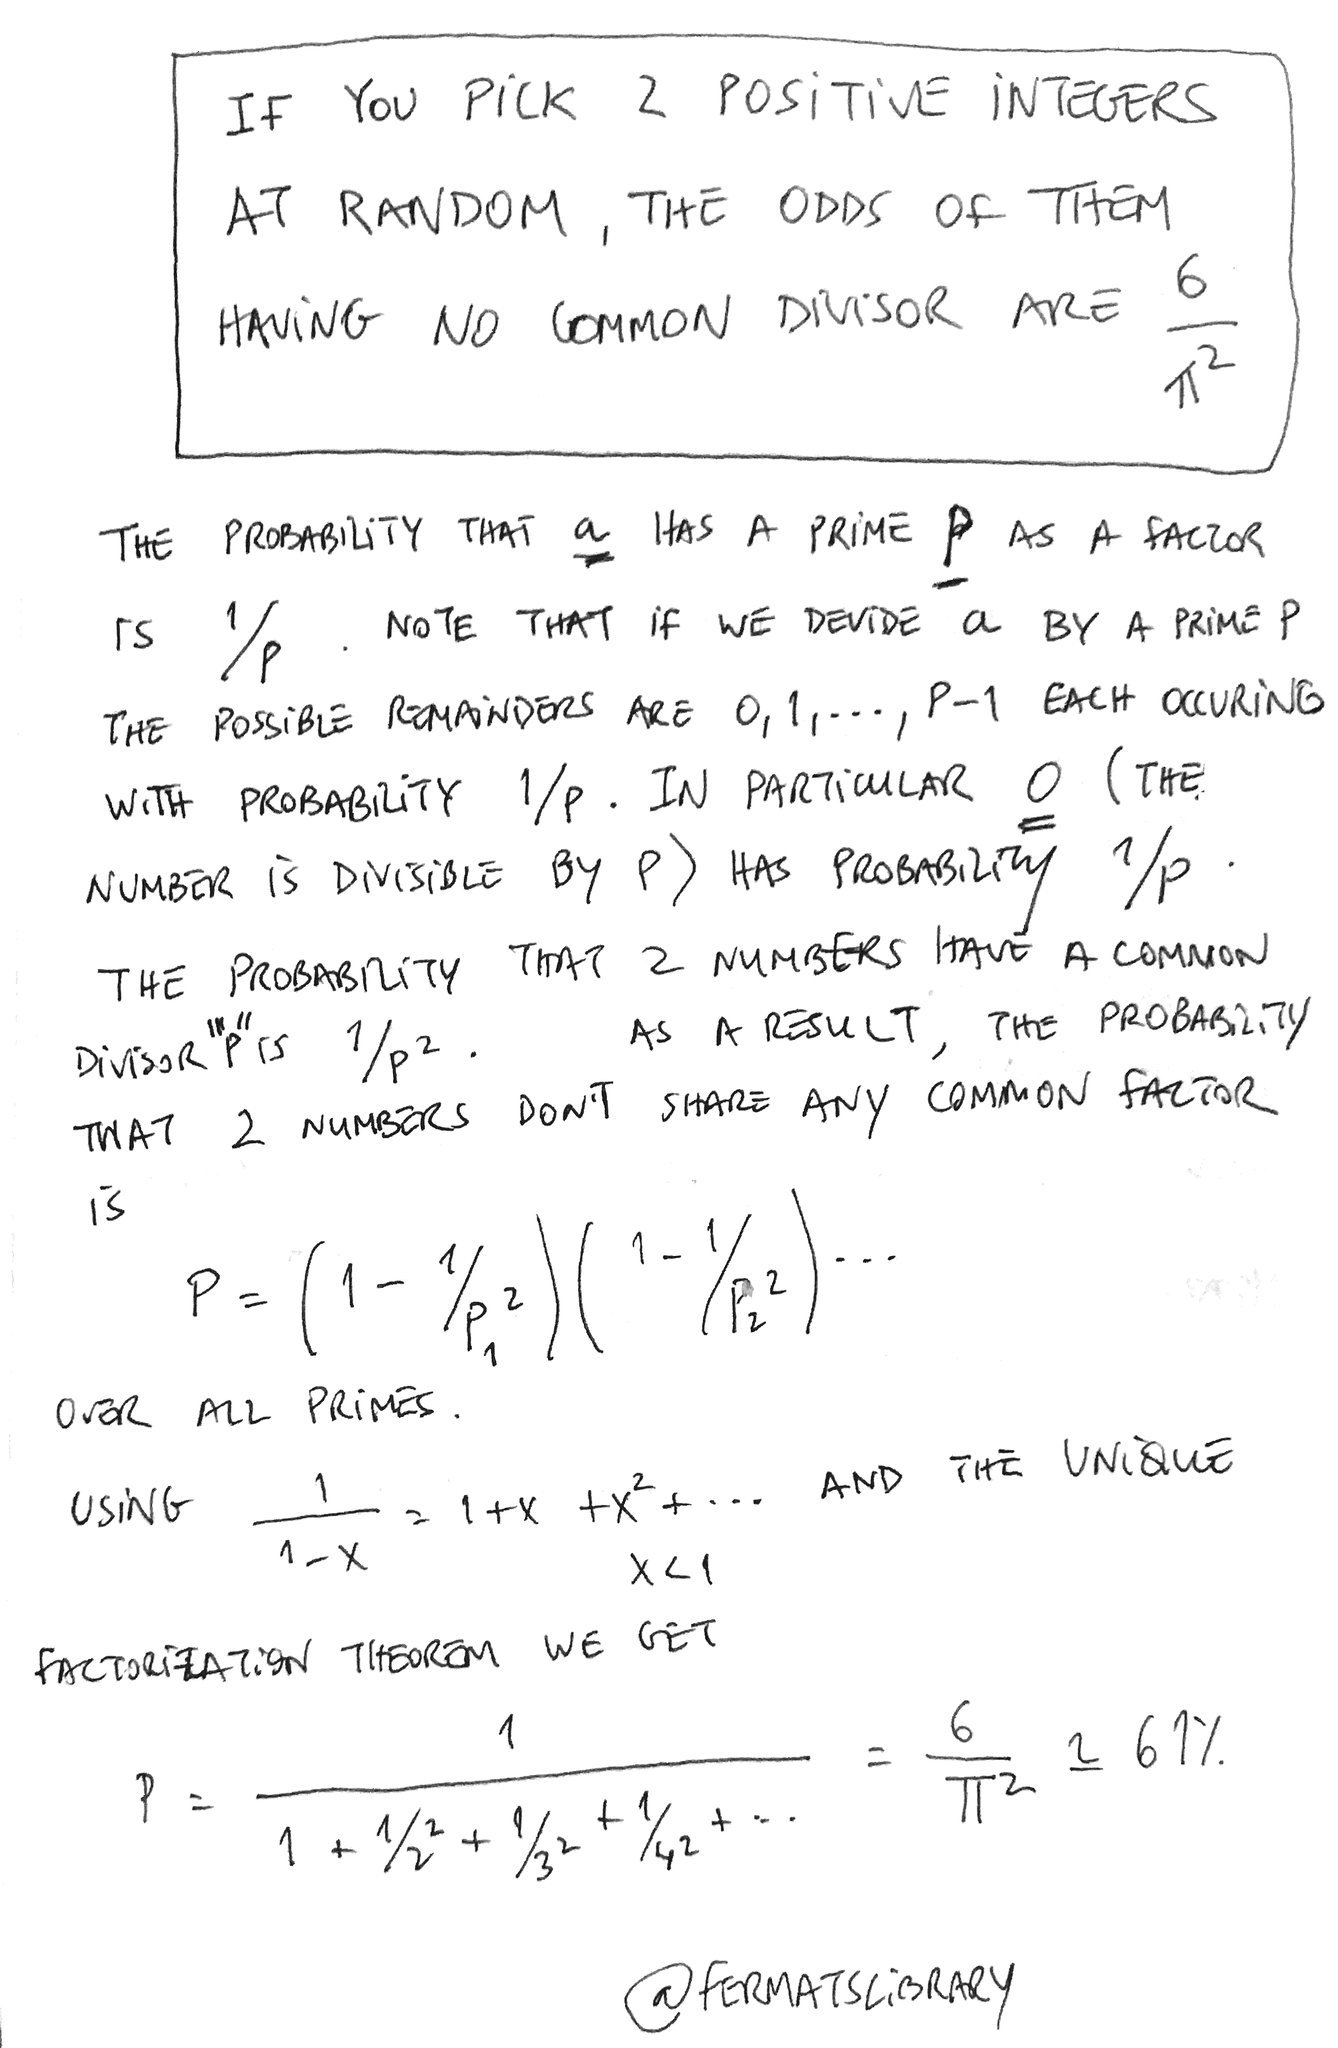 IF YOU PICK 2 POSITIVE INTEGERS
AT RANDOM, THE ODDS OF THEM
HAVING NO COMMON DIVISOR ARE 6/π²
THE PROBABILITY THAT a HAS A PRIME P AS A FACTOR
IS 1/P. NOTE THAT IF WE DEVIDE a BY A PRIME P
THE POSSIBLE REMAINDERS ARE 0,1,...,P-1 EACH OCCURING
WITH PROBABILITY 1/P. IN PARTICULAR 0 (THE
NUMBER IS DIVISIBLE BY P) HAS PROBABILITY 1/P.
THE PROBABILITY THAT 2 NUMBERS HAVE A COMMON
DIVISOR "P" IS 1/P². AS A RESULT, THE PROBABILITY
THAT 2 NUMBERS DON'T SHARE ANY COMMON FACTOR
IS
P = (1 - 1/P₁²)(1 - 1/P₂²)...
OVER ALL PRIMES.
USING 1/(1-X) = 1+X+X²+... AND THE UNIQUE
X<1
FACTORIZATION THEOREM WE GET
P = 1/(1 + 1/2² + 1/3² + 1/4² + ...) = 6/π² ≃ 61%
@FERMATSLIBRARY